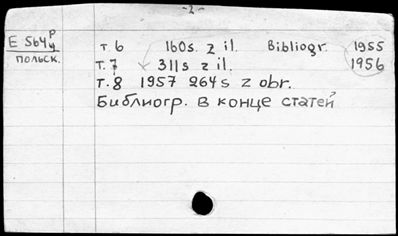 -2-
E 564 р/у т.6 160s. z il. Bibliogr. 1955
польск. т.7 311s z il. 1956
т.8 1957 264s z obr.
Библиогр. в конце статей